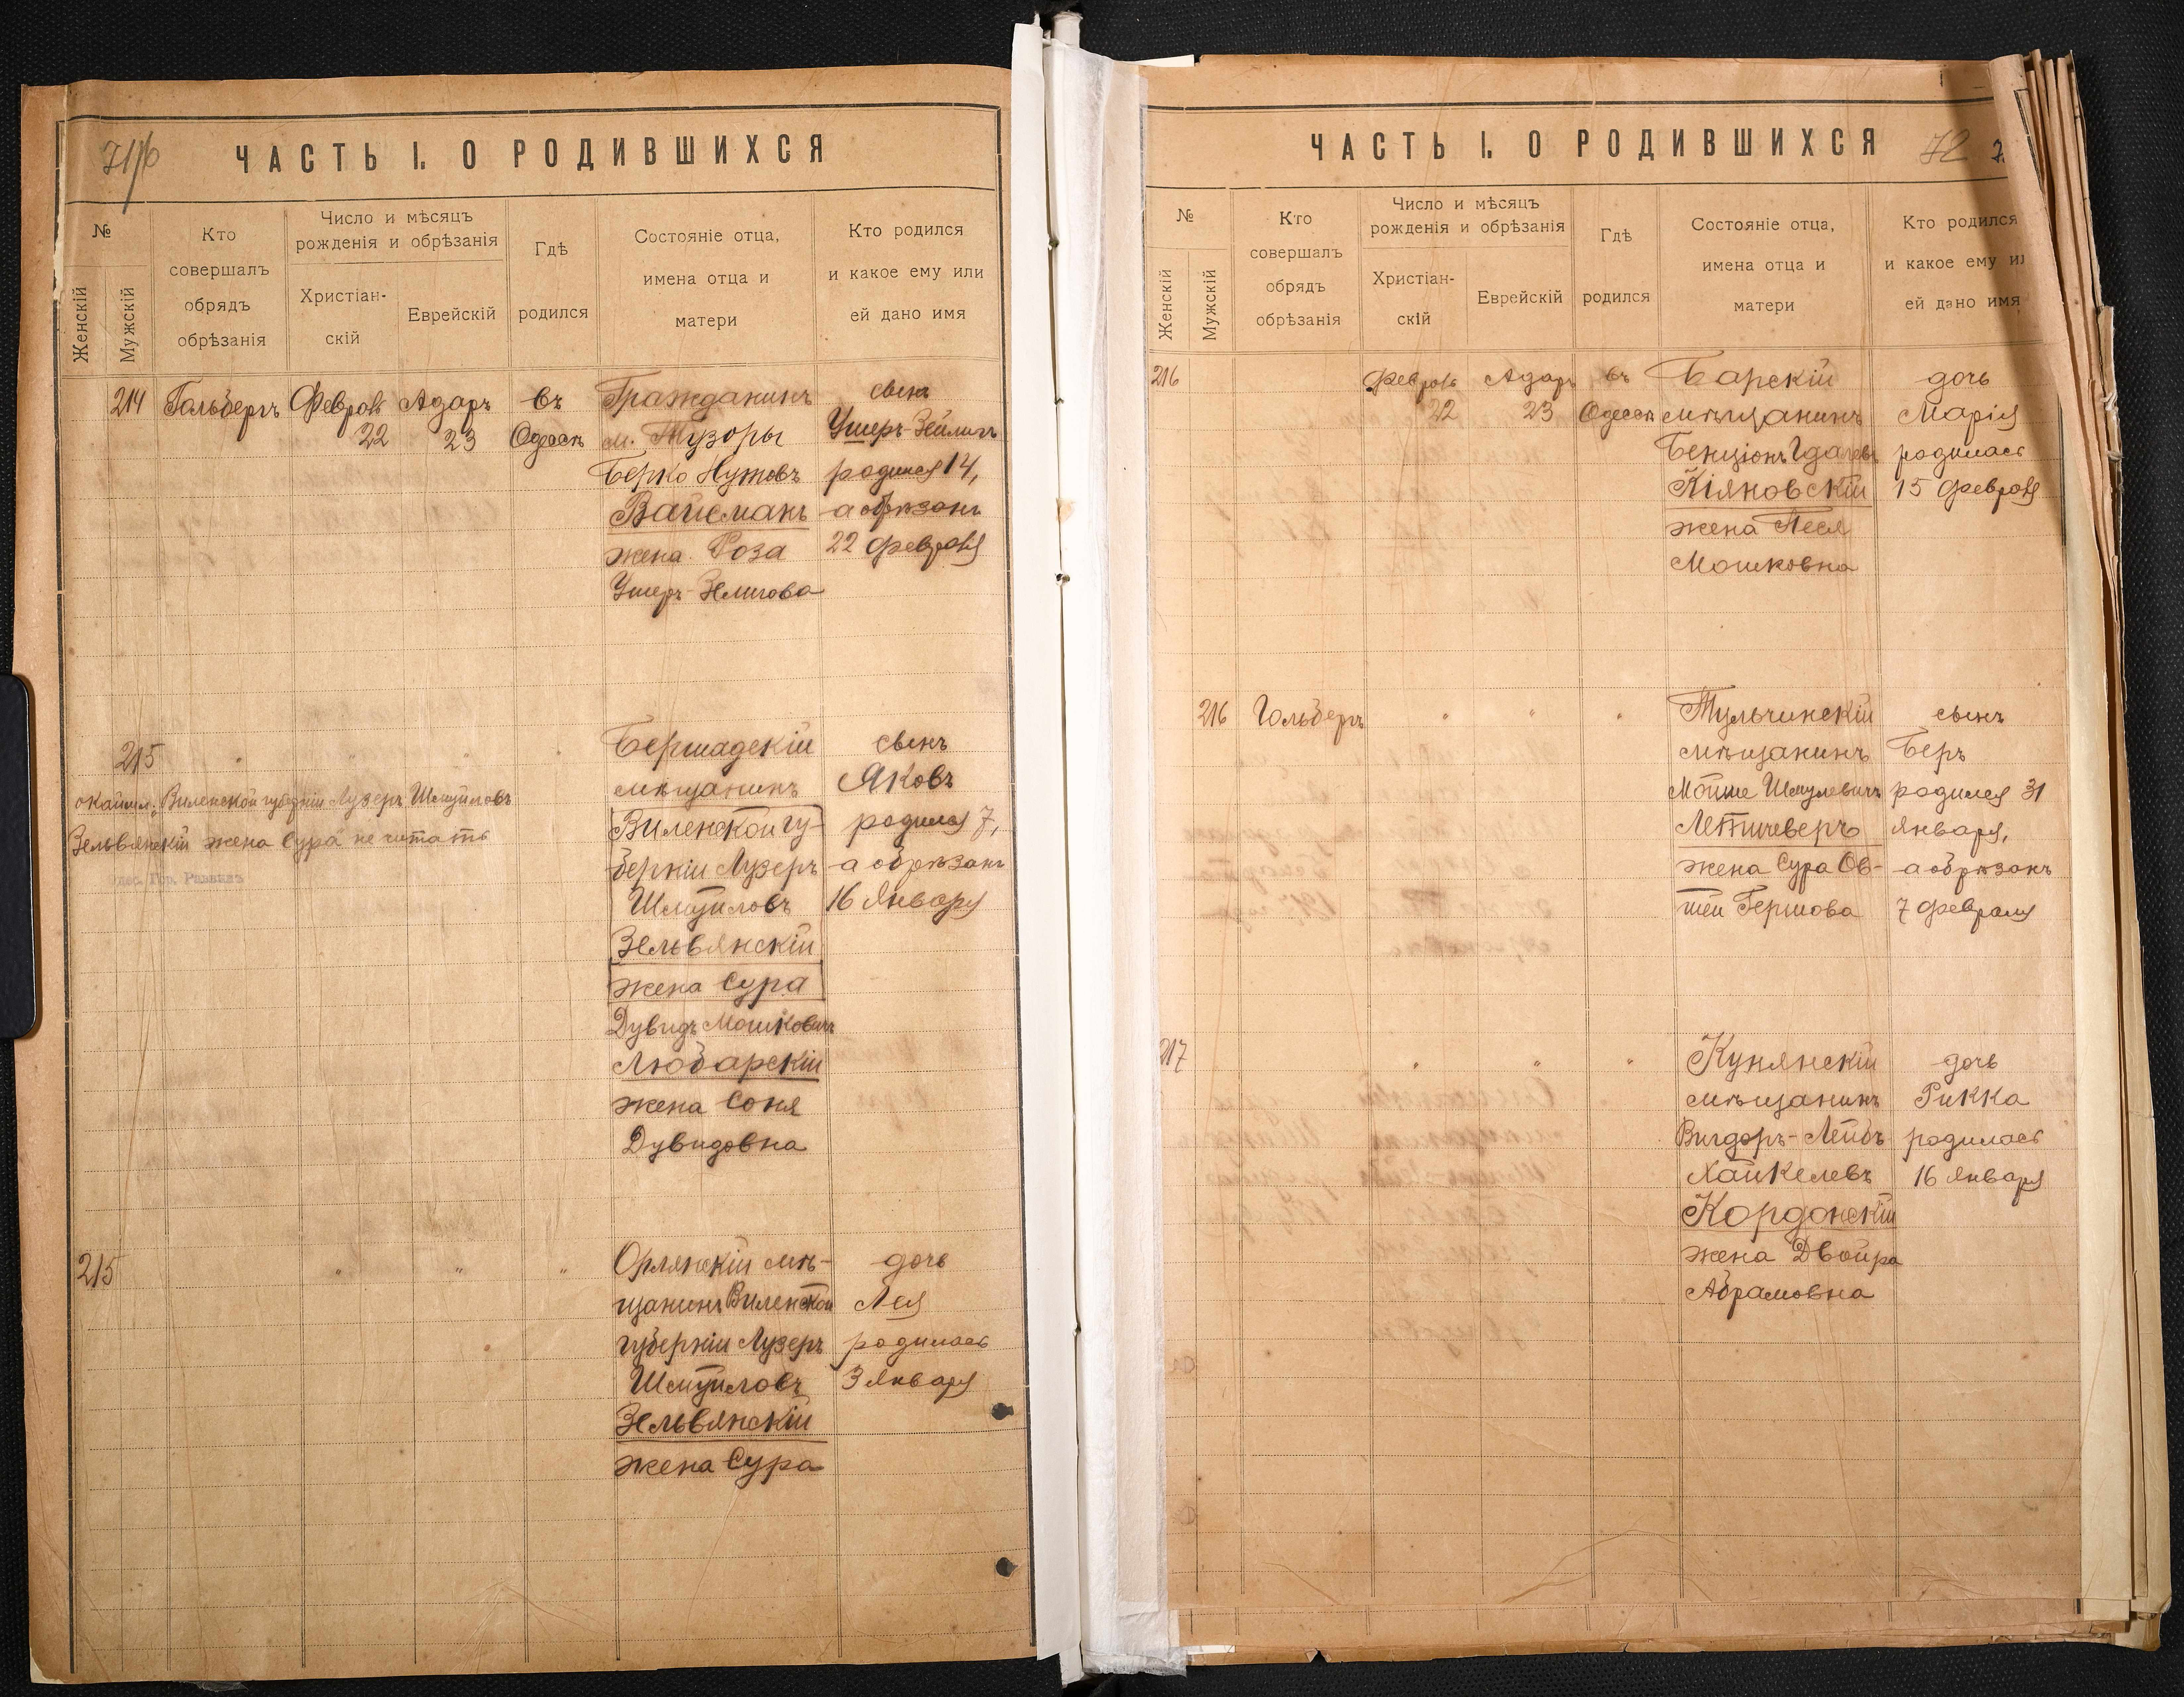 71/б
ЧАСТЬ I. О РОДИВШИХСЯ
№
Женскій
Мужскій
Кто
совершалъ
обрядъ
обрѣзанія
Число и мѣсяцъ
рожденія и обрѣзанія
Христіан-
скій
Еврейскій
Гдѣ
родился
Состояніе отца,
имена отца и
матери
Кто родился
и какое ему или
ей дано имя
214
Гольбергъ
Февраля
22
Адаръ
23
въ
Одессѣ
Гражданинъ
м. Тузоры
Берко Нутовъ
Вайсманъ
жена Роза
Ушеръ-Зелигова
сынъ
Ушеръ Зейлигъ
родился 14,
а обрѣзанъ
22 февраля
215
"
"
"
"
окаймл: Виленской губерніи Лузеръ Шмуйловъ
Зельвянскій жена Сура не читать
Бершадскій
мѣщанинъ
Виленской гу-
берніи Лузеръ
Шмуйловъ
Зельвянскій
жена Сура
Дувидъ Мошковичъ
Любарскій
жена Соня
Дувидовна
сынъ
Яковъ
родился 7,
а обрѣзанъ
16 Января
215
"
"
"
Орлянскій мѣ-
щанинъ Виленской
губерніи Лузеръ
Шмуйловъ
Зельвянскій
жена Сура
дочь
Лея
родилась
3 Января
ЧАСТЬ I. О РОДИВШИХСЯ
72
№
Женскій
Мужскій
Кто
совершалъ
обрядъ
обрѣзанія
Число и мѣсяцъ
рожденія и обрѣзанія
Христіан-
скій
Еврейскій
Гдѣ
родился
Состояніе отца,
имена отца и
матери
Кто родился
и какое ему ил
ей дано имя
216
Февраля
22
Адаръ
23
въ
Одессѣ
Барскій
мѣщанинъ
Бенціонъ Гдалевъ
Кіяновскій
жена Песя
Мошковна
дочь
Марія
родилась
15 Февраля
216
Гольбергъ
"
"
"
Тульчинскій
мѣщанинъ
Мойше Шмулевичъ
Летичеверъ
жена Сура Ов-
шеи Гершова
сынъ
Беръ
родился 31
Января,
а обрѣзанъ
7 февраля
217
"
"
"
Кунянскій
мѣщанинъ
Вигдоръ-Лейбъ
Хайкелевъ
Кордонскій
жена Двойра
Абрамовна
дочь
Рикка
родилась
16 Января